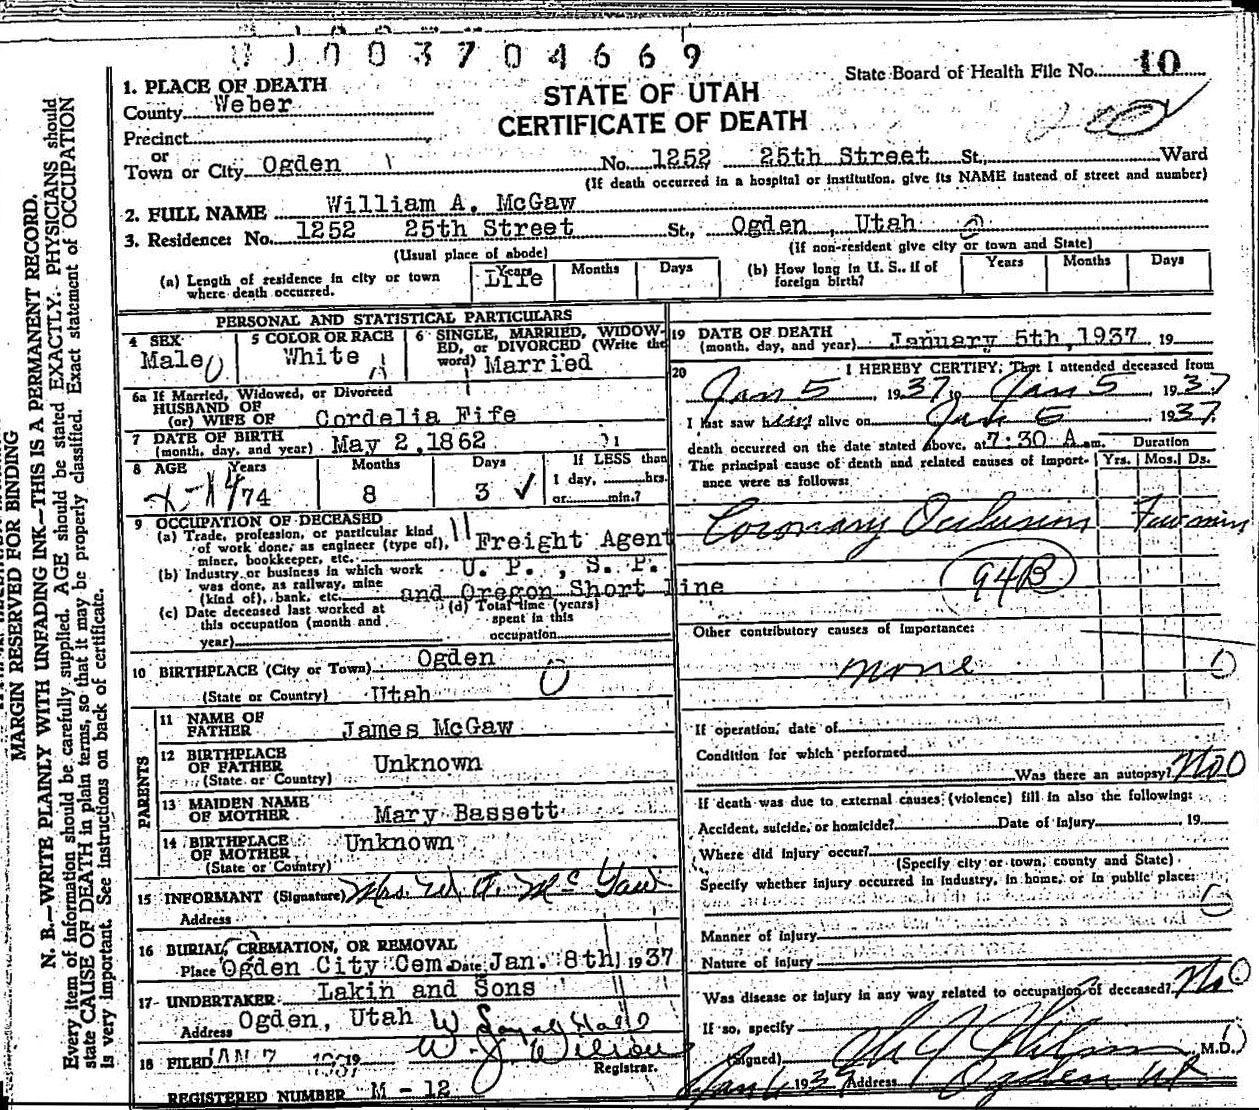 0 0 3 7 0 4 6 6 9
State Board of Health File No. 10
STATE OF UTAH
CERTIFICATE OF DEATH
1. PLACE OF DEATH
County Weber
Precinct
or
Town or City Ogden No. 1252 25th Street St., Ward
(If death occurred in a hospital or institution, give its NAME instead of street and number)
2. FULL NAME William A. McGaw
3. Residence: No. 1252 25th Street St., Ogden, Utah
(Usual place of abode) (If non-resident give city or town and State)
(a) Length of residence in city or town where death occurred. Years Life Months Days
(b) How long in U. S., if of foreign birth? Years Months Days
PERSONAL AND STATISTICAL PARTICULARS
4 SEX Male
5 COLOR OR RACE White
6 SINGLE, MARRIED, WIDOWED, or DIVORCED (Write the word) Married
6a If Married, Widowed, or Divorced
HUSBAND OF
(or) WIFE OF Cordelia Fife
7 DATE OF BIRTH
(month, day, and year) May 2, 1862
8 AGE Years 74 Months 8 Days 3 If LESS than 1 day, hrs. or min.?
9 OCCUPATION OF DECEASED
(a) Trade, profession, or particular kind of work done, as engineer (type of), miner, bookkeeper, etc. Freight Agent
(b) Industry or business in which work was done, as railway, mine (kind of), bank, etc. U. P., S. P. and Oregon Short Line
(c) Date deceased last worked at this occupation (month and year)
(d) Total time (years) spent in this occupation
10 BIRTHPLACE (City or Town) Ogden
(State or Country) Utah
PARENTS
11 NAME OF FATHER James McGaw
12 BIRTHPLACE OF FATHER Unknown
(State or Country)
13 MAIDEN NAME OF MOTHER Mary Bassett
14 BIRTHPLACE OF MOTHER Unknown
(State or Country)
15 INFORMANT (Signature) Mrs. W. A. McGaw
Address
16 BURIAL, CREMATION, OR REMOVAL
Place Ogden City Cem. Date Jan. 8th 1937
17 UNDERTAKER Lakin and Sons
Address Ogden, Utah
18 FILED JAN 7 19 W. J. Wilson
Registrar.
REGISTERED NUMBER M - 12
19 DATE OF DEATH
(month, day, and year) January 5th, 1937 19
20 I HEREBY CERTIFY, That I attended deceased from
Jan 5, 1937 to Jan 5 1937
I last saw him alive on Jan 5 1937
death occurred on the date stated above, at 7:30 A. m.
Duration
Yrs. Mos. Ds.
The principal cause of death and related causes of importance were as follows:
Coronary Occlusion Few min
94B
Other contributory causes of importance:
none
If operation, date of
Condition for which performed
Was there an autopsy? No
If death was due to external causes (violence) fill in also the following:
Accident, suicide, or homicide? Date of injury 19
Where did injury occur?
(Specify city or town, county and State)
Specify whether injury occurred in industry, in home, or in public place:
Manner of injury
Nature of injury
Was disease or injury in any way related to occupation of deceased? No
If so, specify
(Signed) M.D.
Jan 6 1937 Address Ogden Ut
MARGIN RESERVED FOR BINDING
N. B.—WRITE PLAINLY WITH UNFADING INK—THIS IS A PERMANENT RECORD.
Every item of information should be carefully supplied. AGE should be stated EXACTLY. PHYSICIANS should
state CAUSE OF DEATH in plain terms, so that it may be properly classified. Exact statement of OCCUPATION
is very important. See instructions on back of certificate.